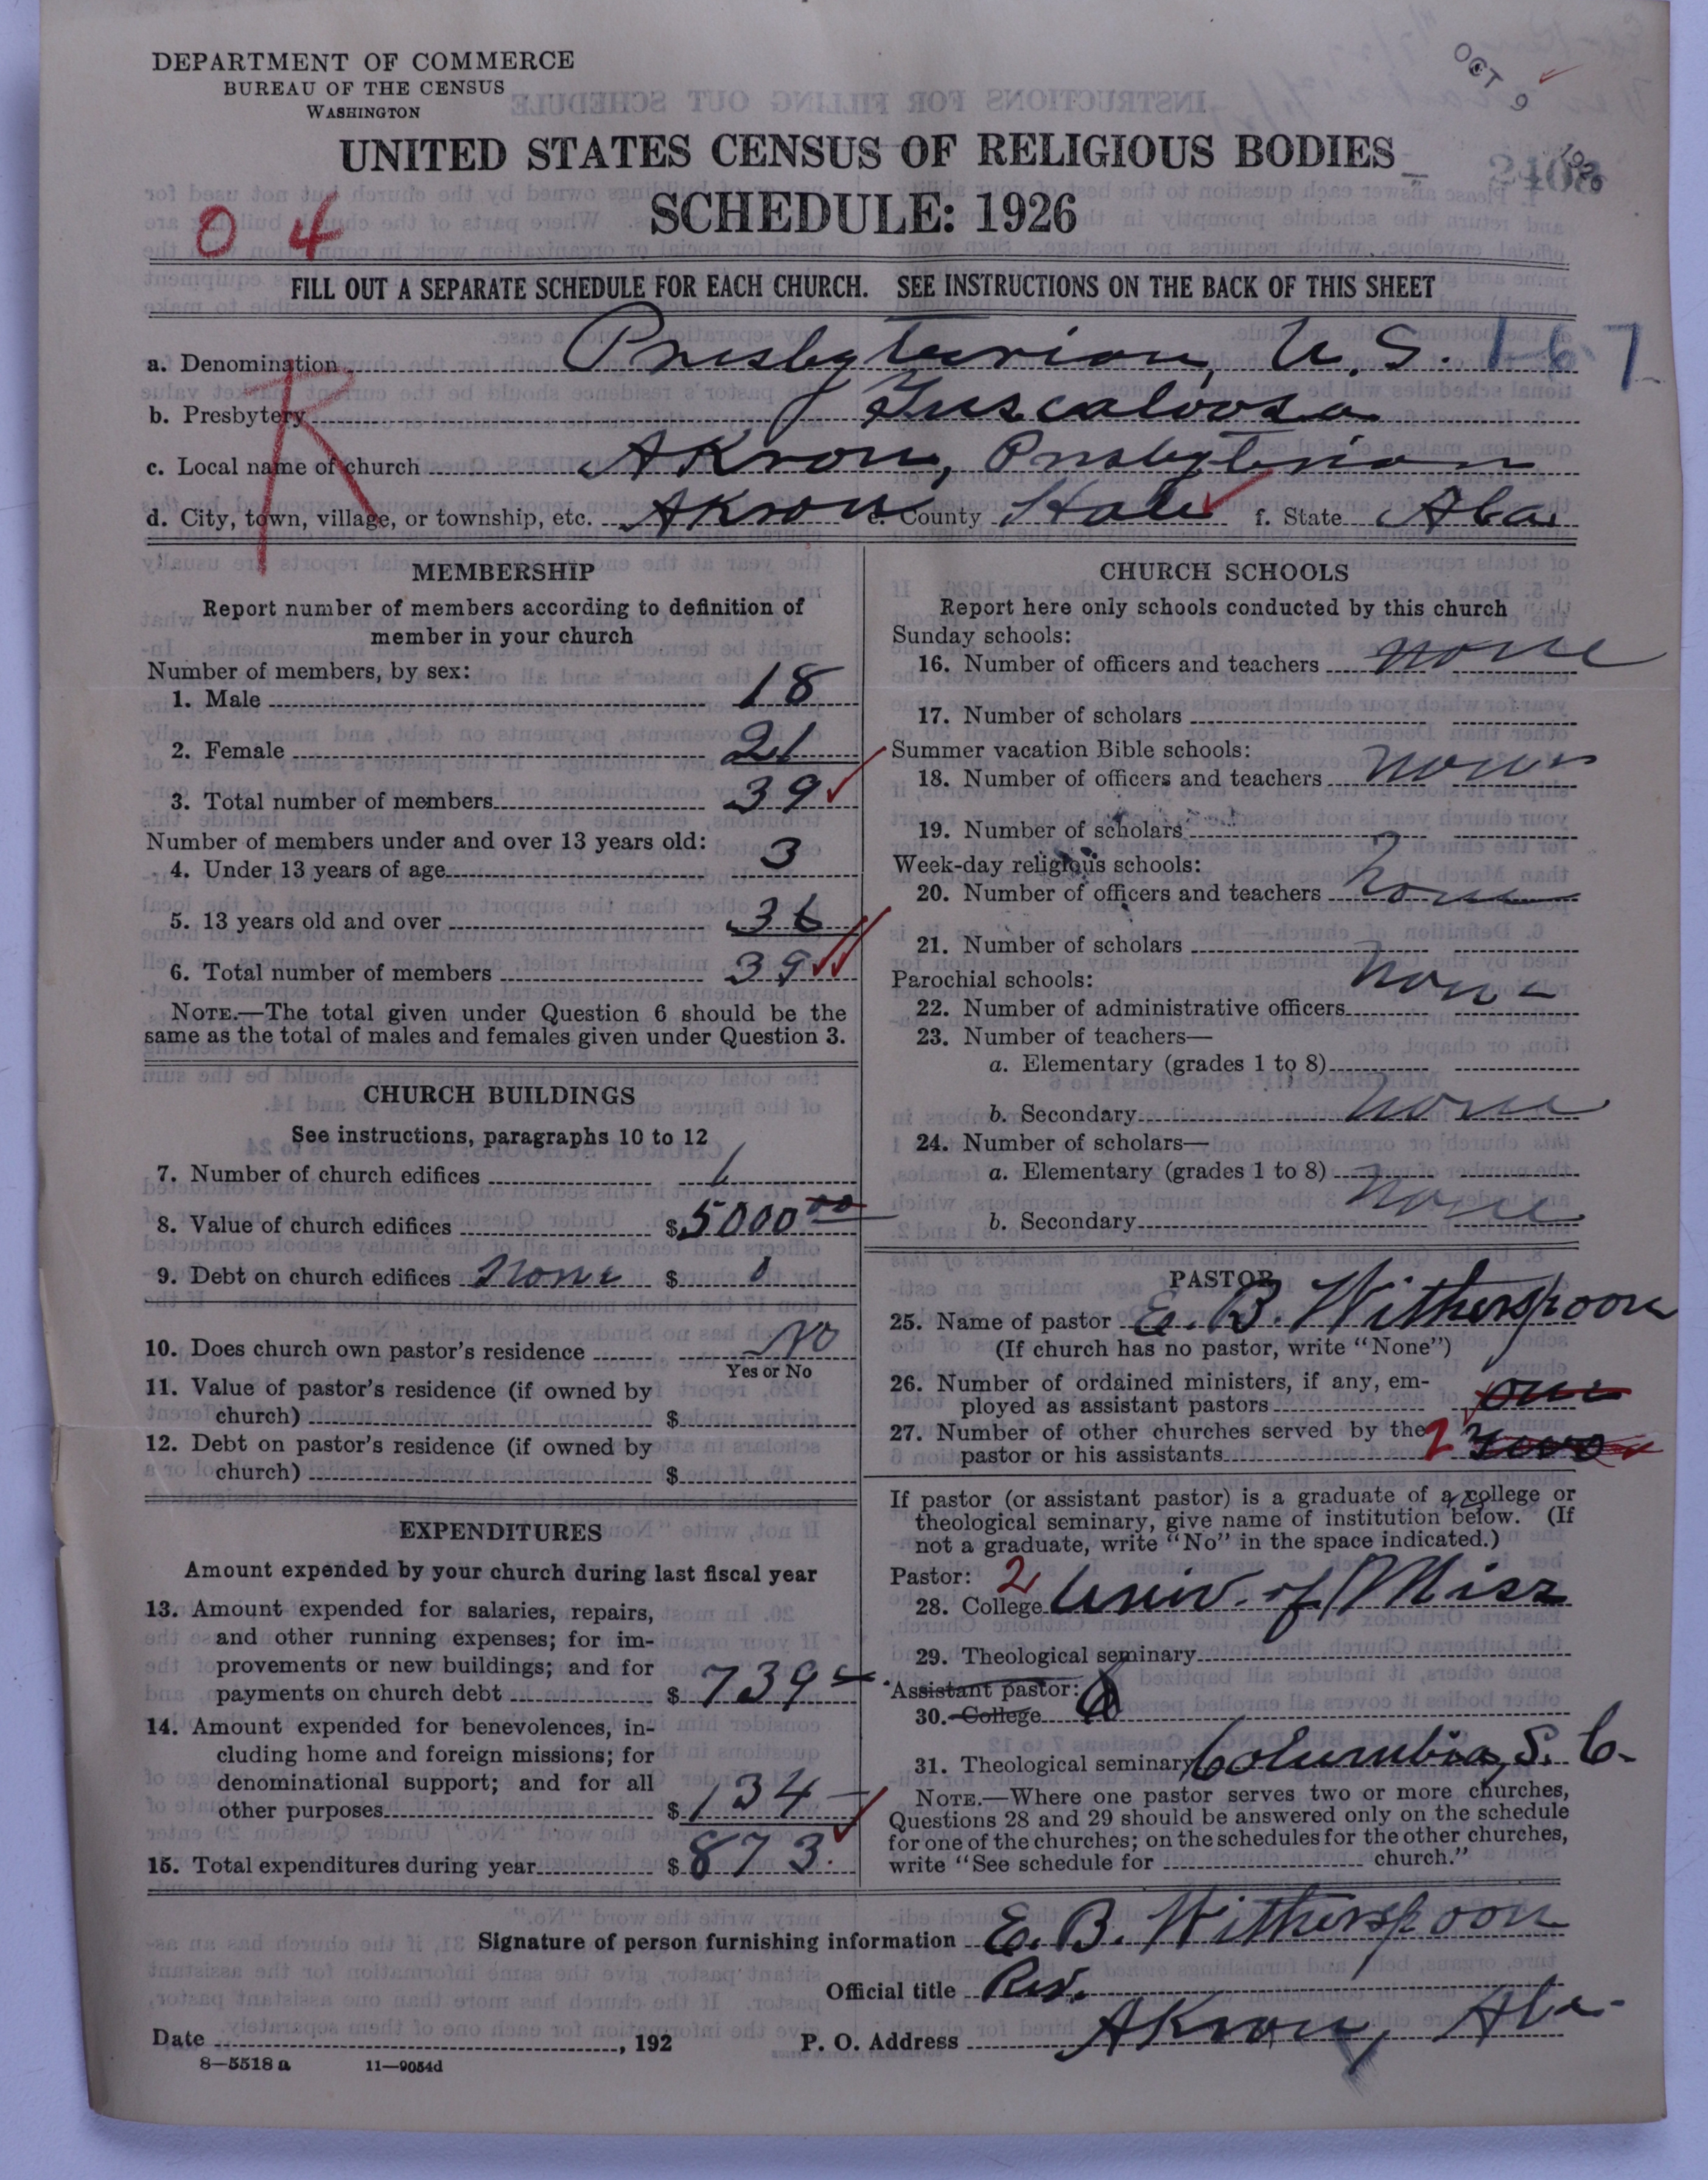 DEPARTMENT OF COMMERCE
BUREAU OF THE CENSUS
WASHINGTON
OCT 9 1926
UNITED STATES CENSUS OF RELIGIOUS BODIES
SCHEDULE: 1926
0 4
FILL OUT A SEPARATE SCHEDULE FOR EACH CHURCH. SEE INSTRUCTIONS ON THE BACK OF THIS SHEET
a. Denomination Presbyterian, U.S. 167
b. Presbytery Tuscaloosa
R
c. Local name of church Akron, Presbyterian
d. City, town, village, or township, etc. Akron e. County Hale f. State Ala.
MEMBERSHIP
Report number of members according to definition of
member in your church
Number of members, by sex:
1. Male 18
2. Female 21
3. Total number of members 39
Number of members under and over 13 years old:
4. Under 13 years of age 3
5. 13 years old and over 36
6. Total number of members 39
NOTE.—The total given under Question 6 should be the
same as the total of males and females given under Question 3.
CHURCH BUILDINGS
See instructions, paragraphs 10 to 12
7. Number of church edifices 1
8. Value of church edifices $5000 00
9. Debt on church edifices None $ 0
10. Does church own pastor's residence No
Yes or No
11. Value of pastor's residence (if owned by
church) $
12. Debt on pastor's residence (if owned by
church) $
EXPENDITURES
Amount expended by your church during last fiscal year
13. Amount expended for salaries, repairs,
and other running expenses; for im-
provements or new buildings; and for
payments on church debt $ 739
14. Amount expended for benevolences, in-
cluding home and foreign missions; for
denominational support; and for all
other purposes $ 134
15. Total expenditures during year $ 873.
CHURCH SCHOOLS
Report here only schools conducted by this church
Sunday schools:
16. Number of officers and teachers none
17. Number of scholars
Summer vacation Bible schools:
18. Number of officers and teachers none
19. Number of scholars
Week-day religious schools:
20. Number of officers and teachers none
21. Number of scholars
Parochial schools: none
22. Number of administrative officers
23. Number of teachers—
a. Elementary (grades 1 to 8)
b. Secondary none
24. Number of scholars—
a. Elementary (grades 1 to 8)
b. Secondary none
PASTOR
25. Name of pastor E. B. Witherspoon
(If church has no pastor, write "None")
26. Number of ordained ministers, if any, em-
ployed as assistant pastors one
27. Number of other churches served by the 2
pastor or his assistants
If pastor (or assistant pastor) is a graduate of a college or
theological seminary, give name of institution below. (If
not a graduate, write "No" in the space indicated.)
Pastor: 2
28. College Univ. of Miss
29. Theological seminary
Assistant pastor:
30. College
31. Theological seminary Columbia, S. C.
NOTE.—Where one pastor serves two or more churches,
Questions 28 and 29 should be answered only on the schedule
for one of the churches; on the schedules for the other churches,
write "See schedule for church."
Signature of person furnishing information E. B. Witherspoon
Official title Rev.
Date , 192 P. O. Address Akron, Ala.
8—5518 a 11—9054d